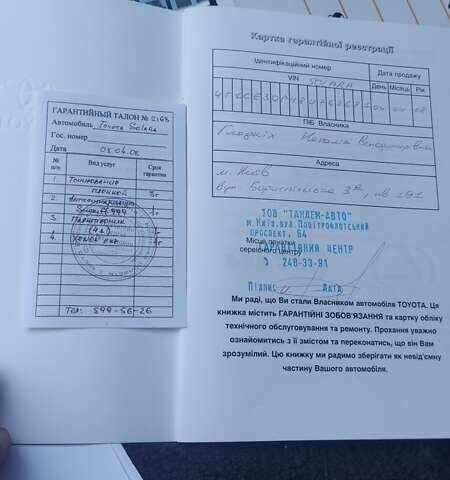 ГАРАНТИЙНЫЙ ТАЛОН № 2168
Автомобиль Toyota Solara
Гос. номер
Дата 05.04.08
№ п/п
Вид услуг
Срок гарантии
1. Тонирование
пленкой
2.
3. Парктроник
(4 д.)
4.
Тел: 599-56-26
Картка гарантійної реєстрації
Ідентифікаційний номер
Дата продажу
VIN SOLARA
День
Місяць
Рік
ПІБ Власника
Наталія
Адреса
м. Київ
ТОВ "ТАНДЕМ-АВТО"
м.Київ,вул.Повітрофлотський
проспект, 64
Місце печатки
ГАРАНТІЙНИЙ ЦЕНТР
сервісного центру
248-33-91
Підпис
Дата
Ми раді, що Ви стали Власником автомобіля TOYOTA. Ця
книжка містить ГАРАНТІЙНІ ЗОБОВ'ЯЗАННЯ та картку обліку
технічного обслуговування та ремонту. Прохання уважно
ознайомитись з її змістом та переконатись, що він Вам
зрозумілий. Цю книжку ми радимо зберігати як невід'ємну
частину Вашого автомобіля.